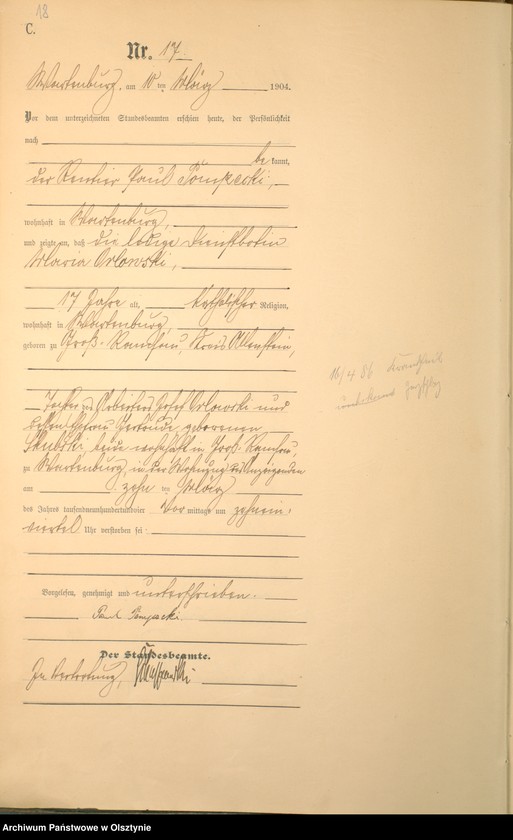 18
C.
Nr. 17
Wartenburg, am 10 ten März 1904.
Vor dem unterzeichneten Standesbeamten erschien heute, der Persönlichkeit
nach
be kannt,
der Rentier Paul
wohnhaft in Wartenburg,
und zeigte an, daß die ledige Dienstbotin
Maria Orlowski,
17 Jahre alt, katholischer Religion,
wohnhaft in Wartenburg,
geboren zu Groß-Ramsau, Kreis Allenstein,
Tochter des Arbeiters Josef Orlowski und
dessen Ehefrau Gertrude, geborenen
Skubski beide wohnhaft in Groß-Ramsau,
zu Wartenburg, in der Wohnung des Anzeigenden
am zehn ten März
des Jahres tausendneunhundertundvier Vor mittags um zehnein-
viertel Uhr verstorben sei.
Vorgelesen, genehmigt und unterschrieben.
Paul
Der Standesbeamte.
In Vertretung,
16/4 86
Archiwum Państwowe w Olsztynie